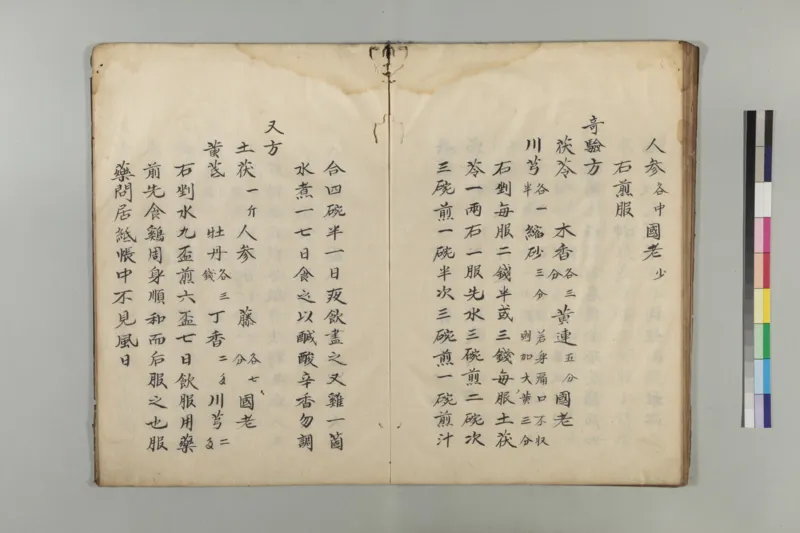 人参各中國老少
右煎服
奇驗方
茯苓 木香各三分黄連五分國老
川芎各一半縮砂三分若身痛口不収則加大黄三分
右剉每服二錢半或三錢每服土茯
苓一兩右一服先水三碗煎二碗次
三碗煎一碗半次三碗煎一碗煎汁
合四碗半一日夜飲盡之又雞一箇
水煮一七日食之以鹹酸辛香勿調
又方
土茯一斤人参 藤各七分國老
黄芪 牡丹各三錢丁香二匁川芎二匁
右剉水九盃煎六盃七日飲服用藥
前先食鷄周身順和而后服之也服
藥問居紙帳中不見風日